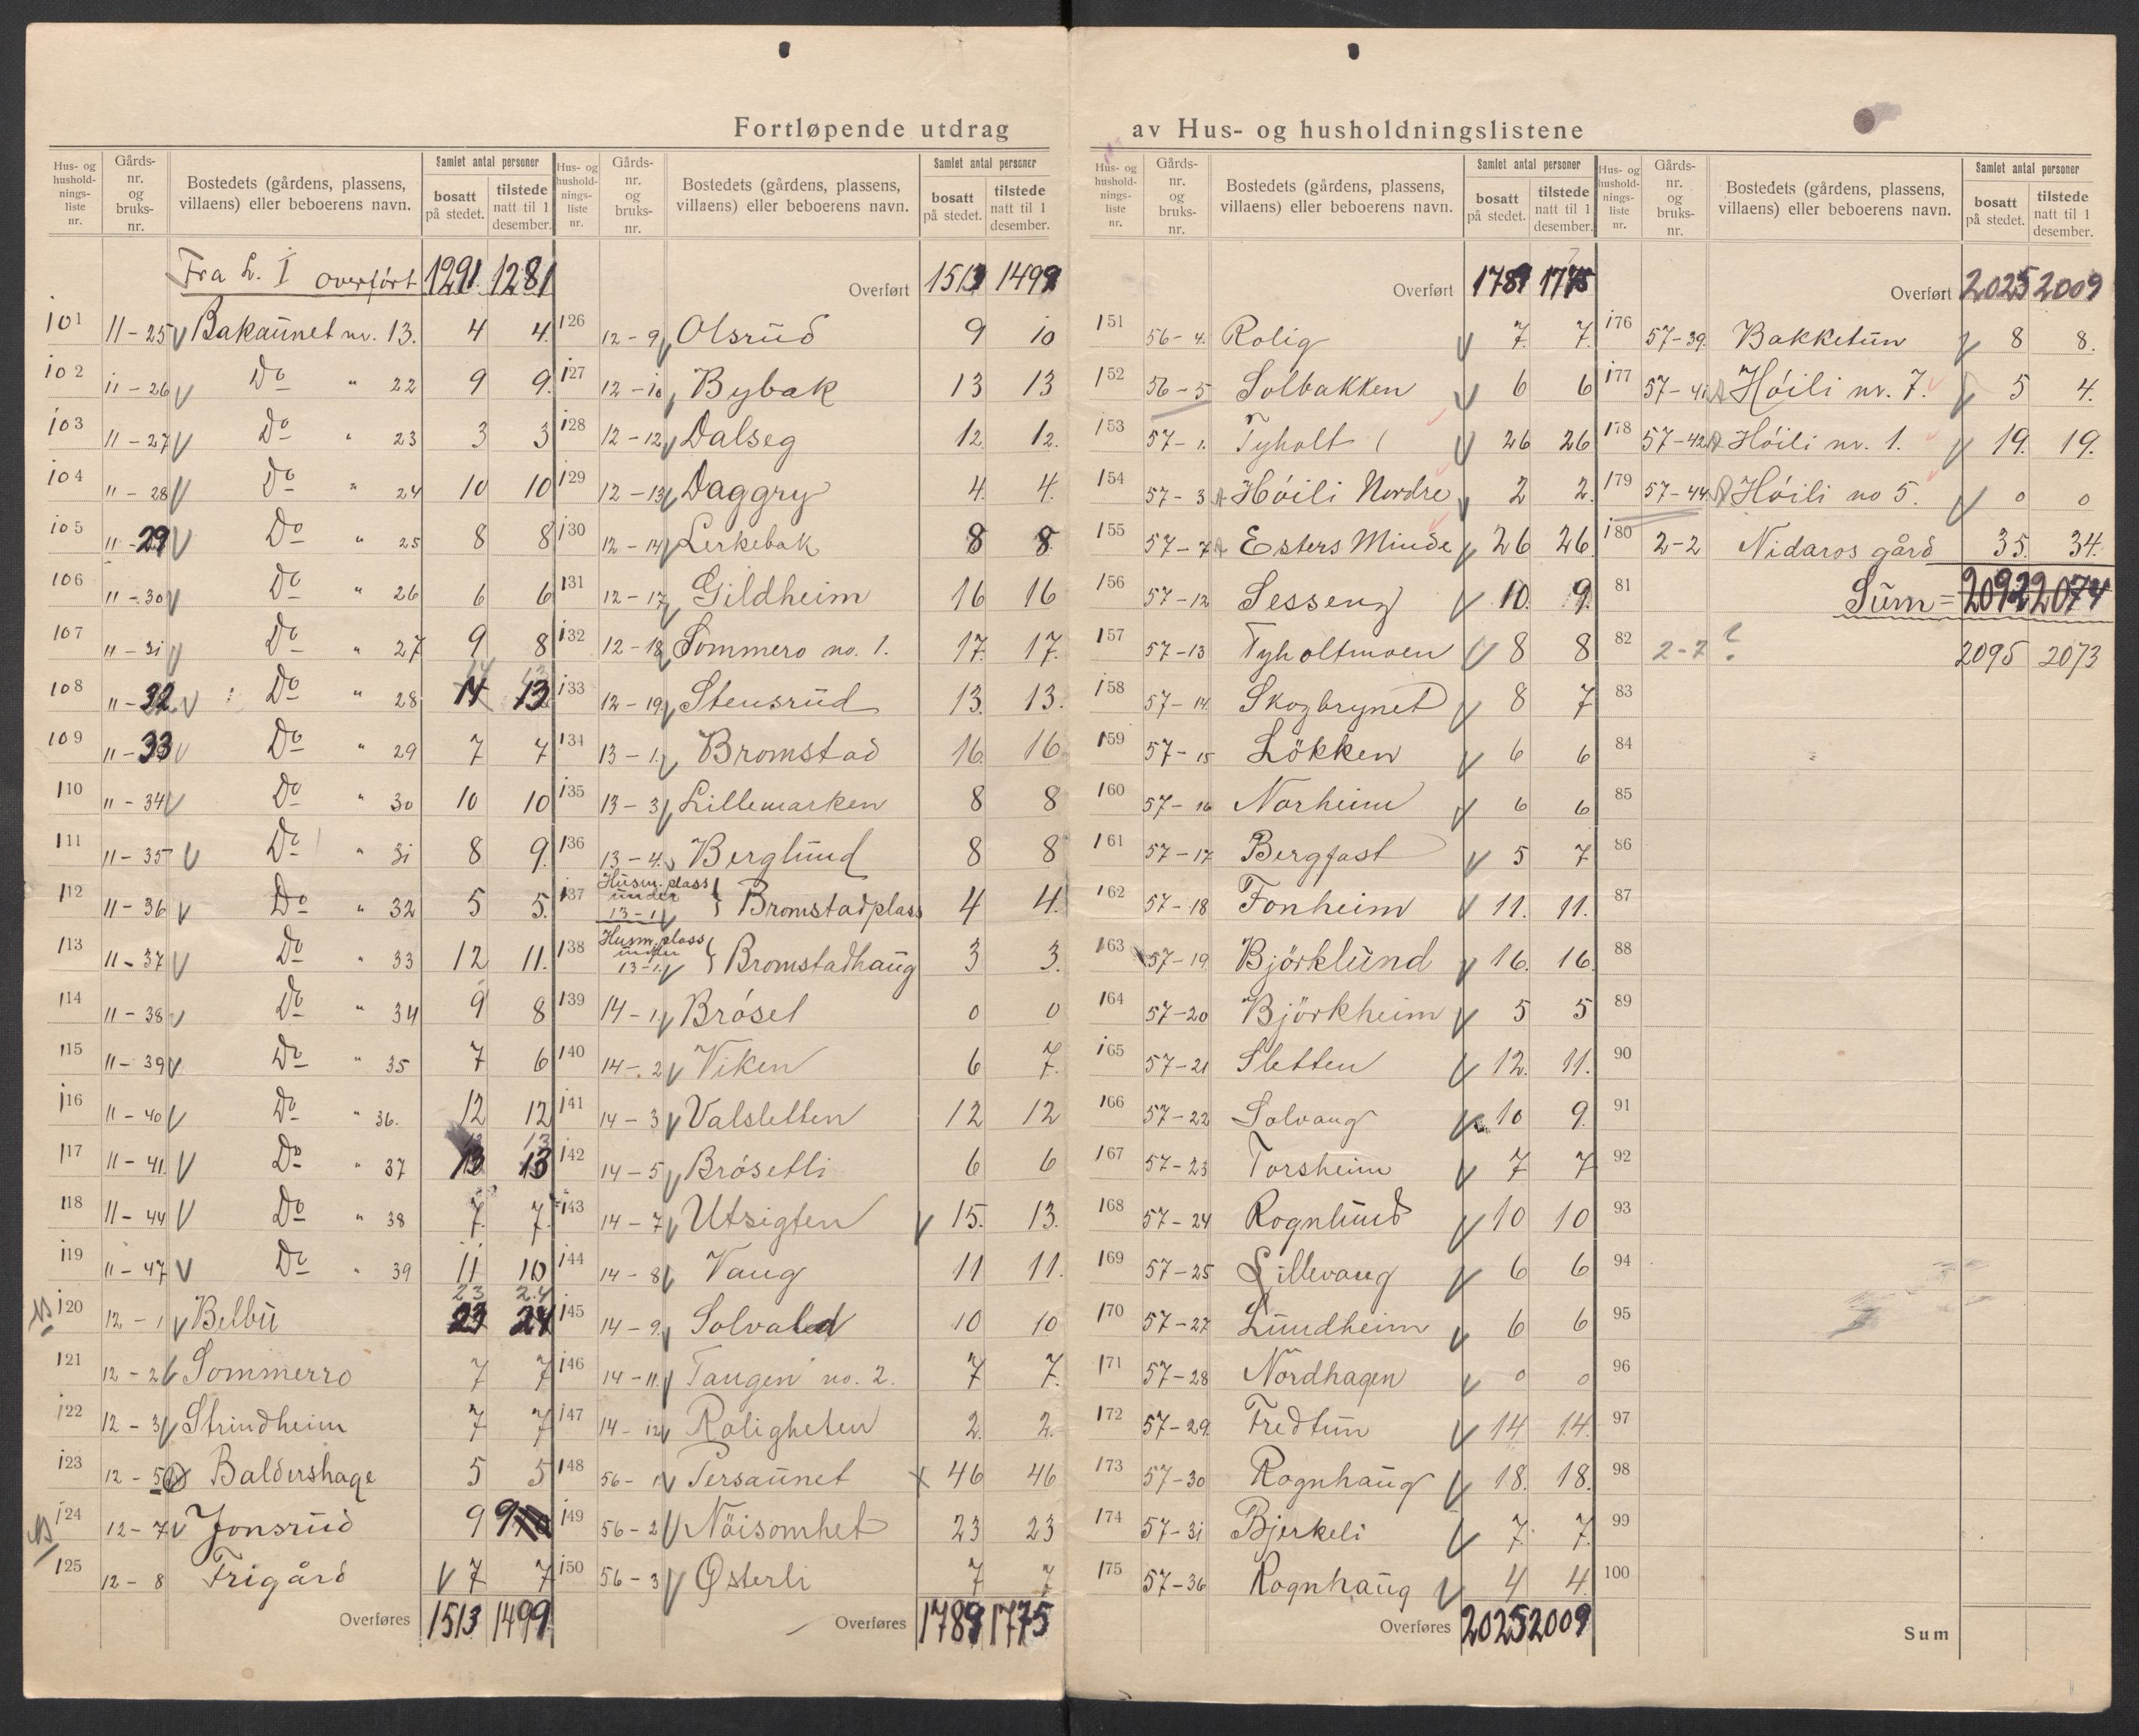 Fortløpende utdrag av Hus- og husholdningslistene
Hus- og hushold-nings-liste nr. | Gårds-nr. og bruks-nr. | Bostedets (gårdens, plassens, villaens) eller beboerens navn. | Samlet antal personer bosatt på stedet. | tilstede natt til 1 desember.
Fra L. I overført 1291 1281
101 11-25 Bakaunet nr. 13. 4 4
102 11-26 Do " 22 9 9
103 11-27 Do " 23 3 3
104 11-28 Do " 24 10 10
105 11-29 Do " 25 8 8
106 11-30 Do " 26 6 6
107 11-31 Do " 27 9 8
108 11-32 Do " 28 14 13
109 11-33 Do " 29 7 7
110 11-34 Do " 30 10 10
111 11-35 Do " 31 8 9
112 11-36 Do " 32 5 5
113 11-37 Do " 33 12 11
114 11-38 Do " 34 9 8
115 11-39 Do " 35 7 6
116 11-40 Do " 36. 12 12
117 11-41 Do " 37 13 13
118 11-44 Do " 38 7 7
119 11-47 Do " 39 11 10
120 12-1 Belbu 23 24
121 12-2 Sommerro 7 7
122 12-3 Strindheim 7 7
123 12-5 Baldershage 5 5
124 12-7 Jonsrud 9 9
125 12-8 Frigård 7 7
Overføres 1513 1499
Hus- og hushold-nings-liste nr. | Gårds-nr. og bruks-nr. | Bostedets (gårdens, plassens, villaens) eller beboerens navn. | Samlet antal personer bosatt på stedet. | tilstede natt til 1 desember.
Overført 1513 1499
126 12-9 Olsrud 9 10
127 12-10 Bybak 13 13
128 12-12 Dalseg 12 12
129 12-13 Daggry 4 4
130 12-14 Lerkebak 8 8
131 12-17 Gildheim 16 16
132 12-18 Sommero no. 1. 17 17
133 12-19 Stensrud 13 13
134 13-1 Bromstad 16 16
135 13-3 Lillemarken 8 8
136 13-4 Berglund 8 8
137 Husm.plass under 13-1 Bromstadplass 4 4
138 Husm.plass under 13-1 Bromstadhaug 3 3
139 14-1 Brøset 0 0
140 14-2 Viken 6 7
141 14-3 Valsletten 12 12
142 14-5 Brøsetli 6 6
143 14-7 Utsigten 15 13
144 14-8 Vang 11 11
145 14-9 Solvald 10 10
146 14-11 Tangen no. 2. 7 7
147 14-12 Roligheten 2 2
148 56-1 Persaunet 46 46
149 56-2 Nöisomhet 23 23
150 56-3 Østerli 7 7
Overføres 1789 1775
Hus- og hushold-nings-liste nr. | Gårds-nr. og bruks-nr. | Bostedets (gårdens, plassens, villaens) eller beboerens navn. | Samlet antal personer bosatt på stedet. | tilstede natt til 1 desember.
Overført 1789 1775
151 56-4 Rolig 7 7
152 56-5 Solbakken 6 6
153 57-1 Tyholt 26 26
154 57-3 Høili Nordre 2 2
155 57-7 Esters Minde 26 26
156 57-12 Sesseng 10 9
157 57-13 Tyholtmoen 8 8
158 57-14 Skogbrynet 8 7
159 57-15 Lökken 6 6
160 57-16 Norheim 6 6
161 57-17 Bergfast 5 7
162 57-18 Fonheim 11 11
163 57-19 Björklund 16 16
164 57-20 Björkheim 5 5
165 57-21 Sletten 12 11
166 57-22 Solvang 10 9
167 57-23 Torsheim 7 7
168 57-24 Rognlund 10 10
169 57-25 Lillevang 6 6
170 57-27 Lundheim 6 6
171 57-28 Nordhagen 0 0
172 57-29 Fredtun 14 14
173 57-30 Rognhaug 18 18
174 57-31 Bjerkeli 7 7
175 57-36 Rognhaug 4 4
Overføres 2025 2009
Hus- og hushold-nings-liste nr. | Gårds-nr. og bruks-nr. | Bostedets (gårdens, plassens, villaens) eller beboerens navn. | Samlet antal personer bosatt på stedet. | tilstede natt til 1 desember.
Overført 2025 2009
176 57-39 Bakketun 8 8
177 57-41 Høili nr. 7. 5 4
178 57-42 Høili nr. 1. 19 19
179 57-44 Høili no 5. 0 0
180 2-2 Nidaros gård 35 34
81 Sum = 2092 2074
82 2-7 ? 2095 2073
83
84
85
86
87
88
89
90
91
92
93
94
95
96
97
98
99
100
Sum